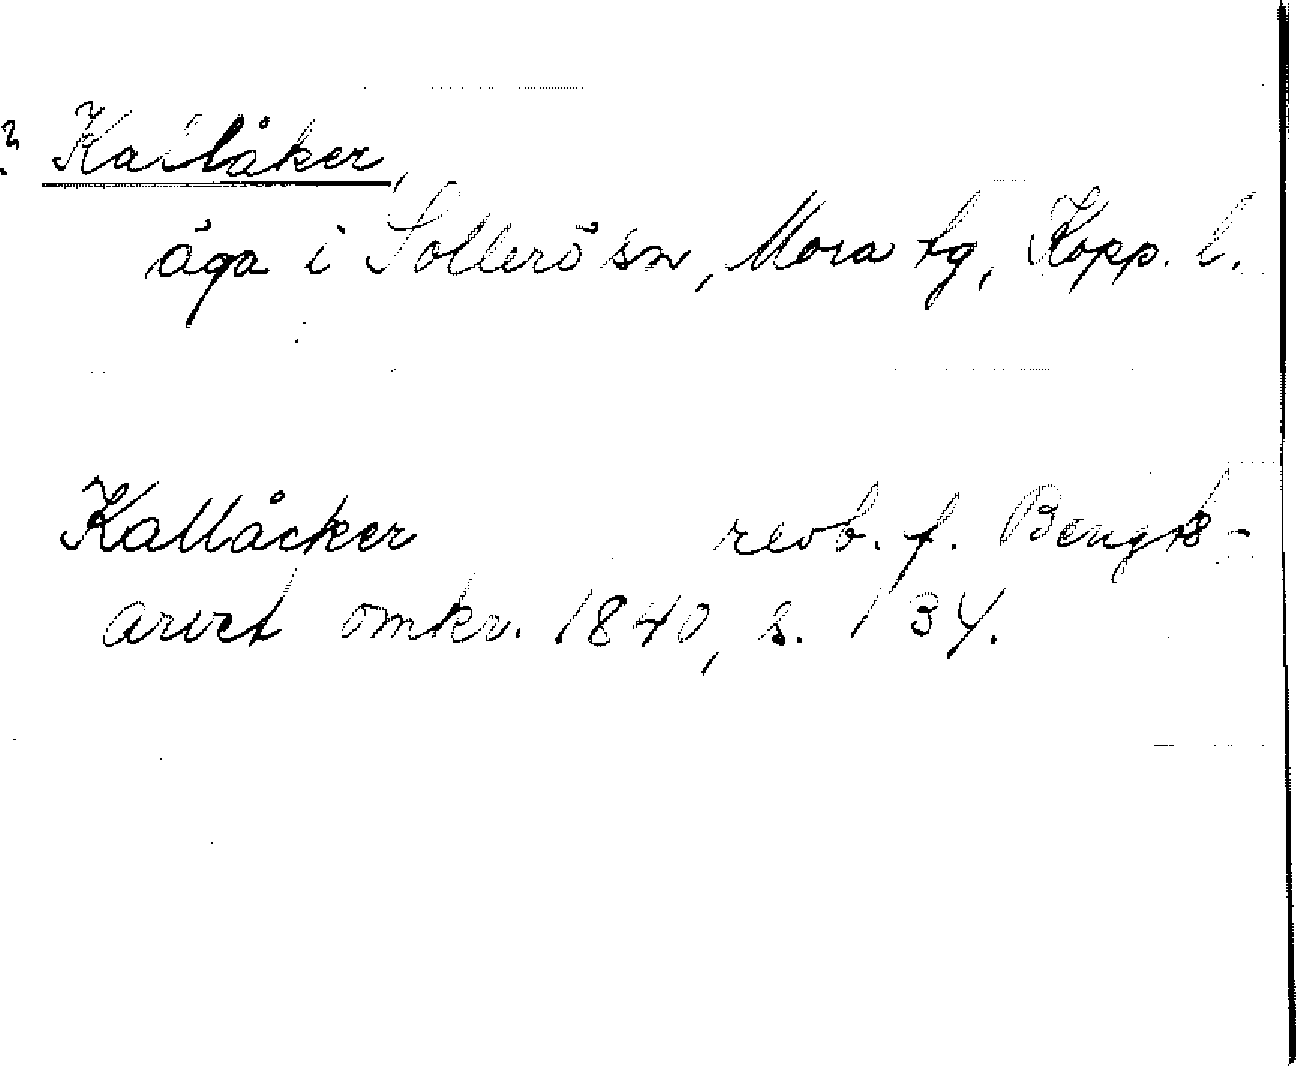 ? Kallåker,
äga i Sollerö sn, Mora tg, Kopp. l.
Kallåcker revb. f. Bengts-
arvet omkr. 1840, s. 134.